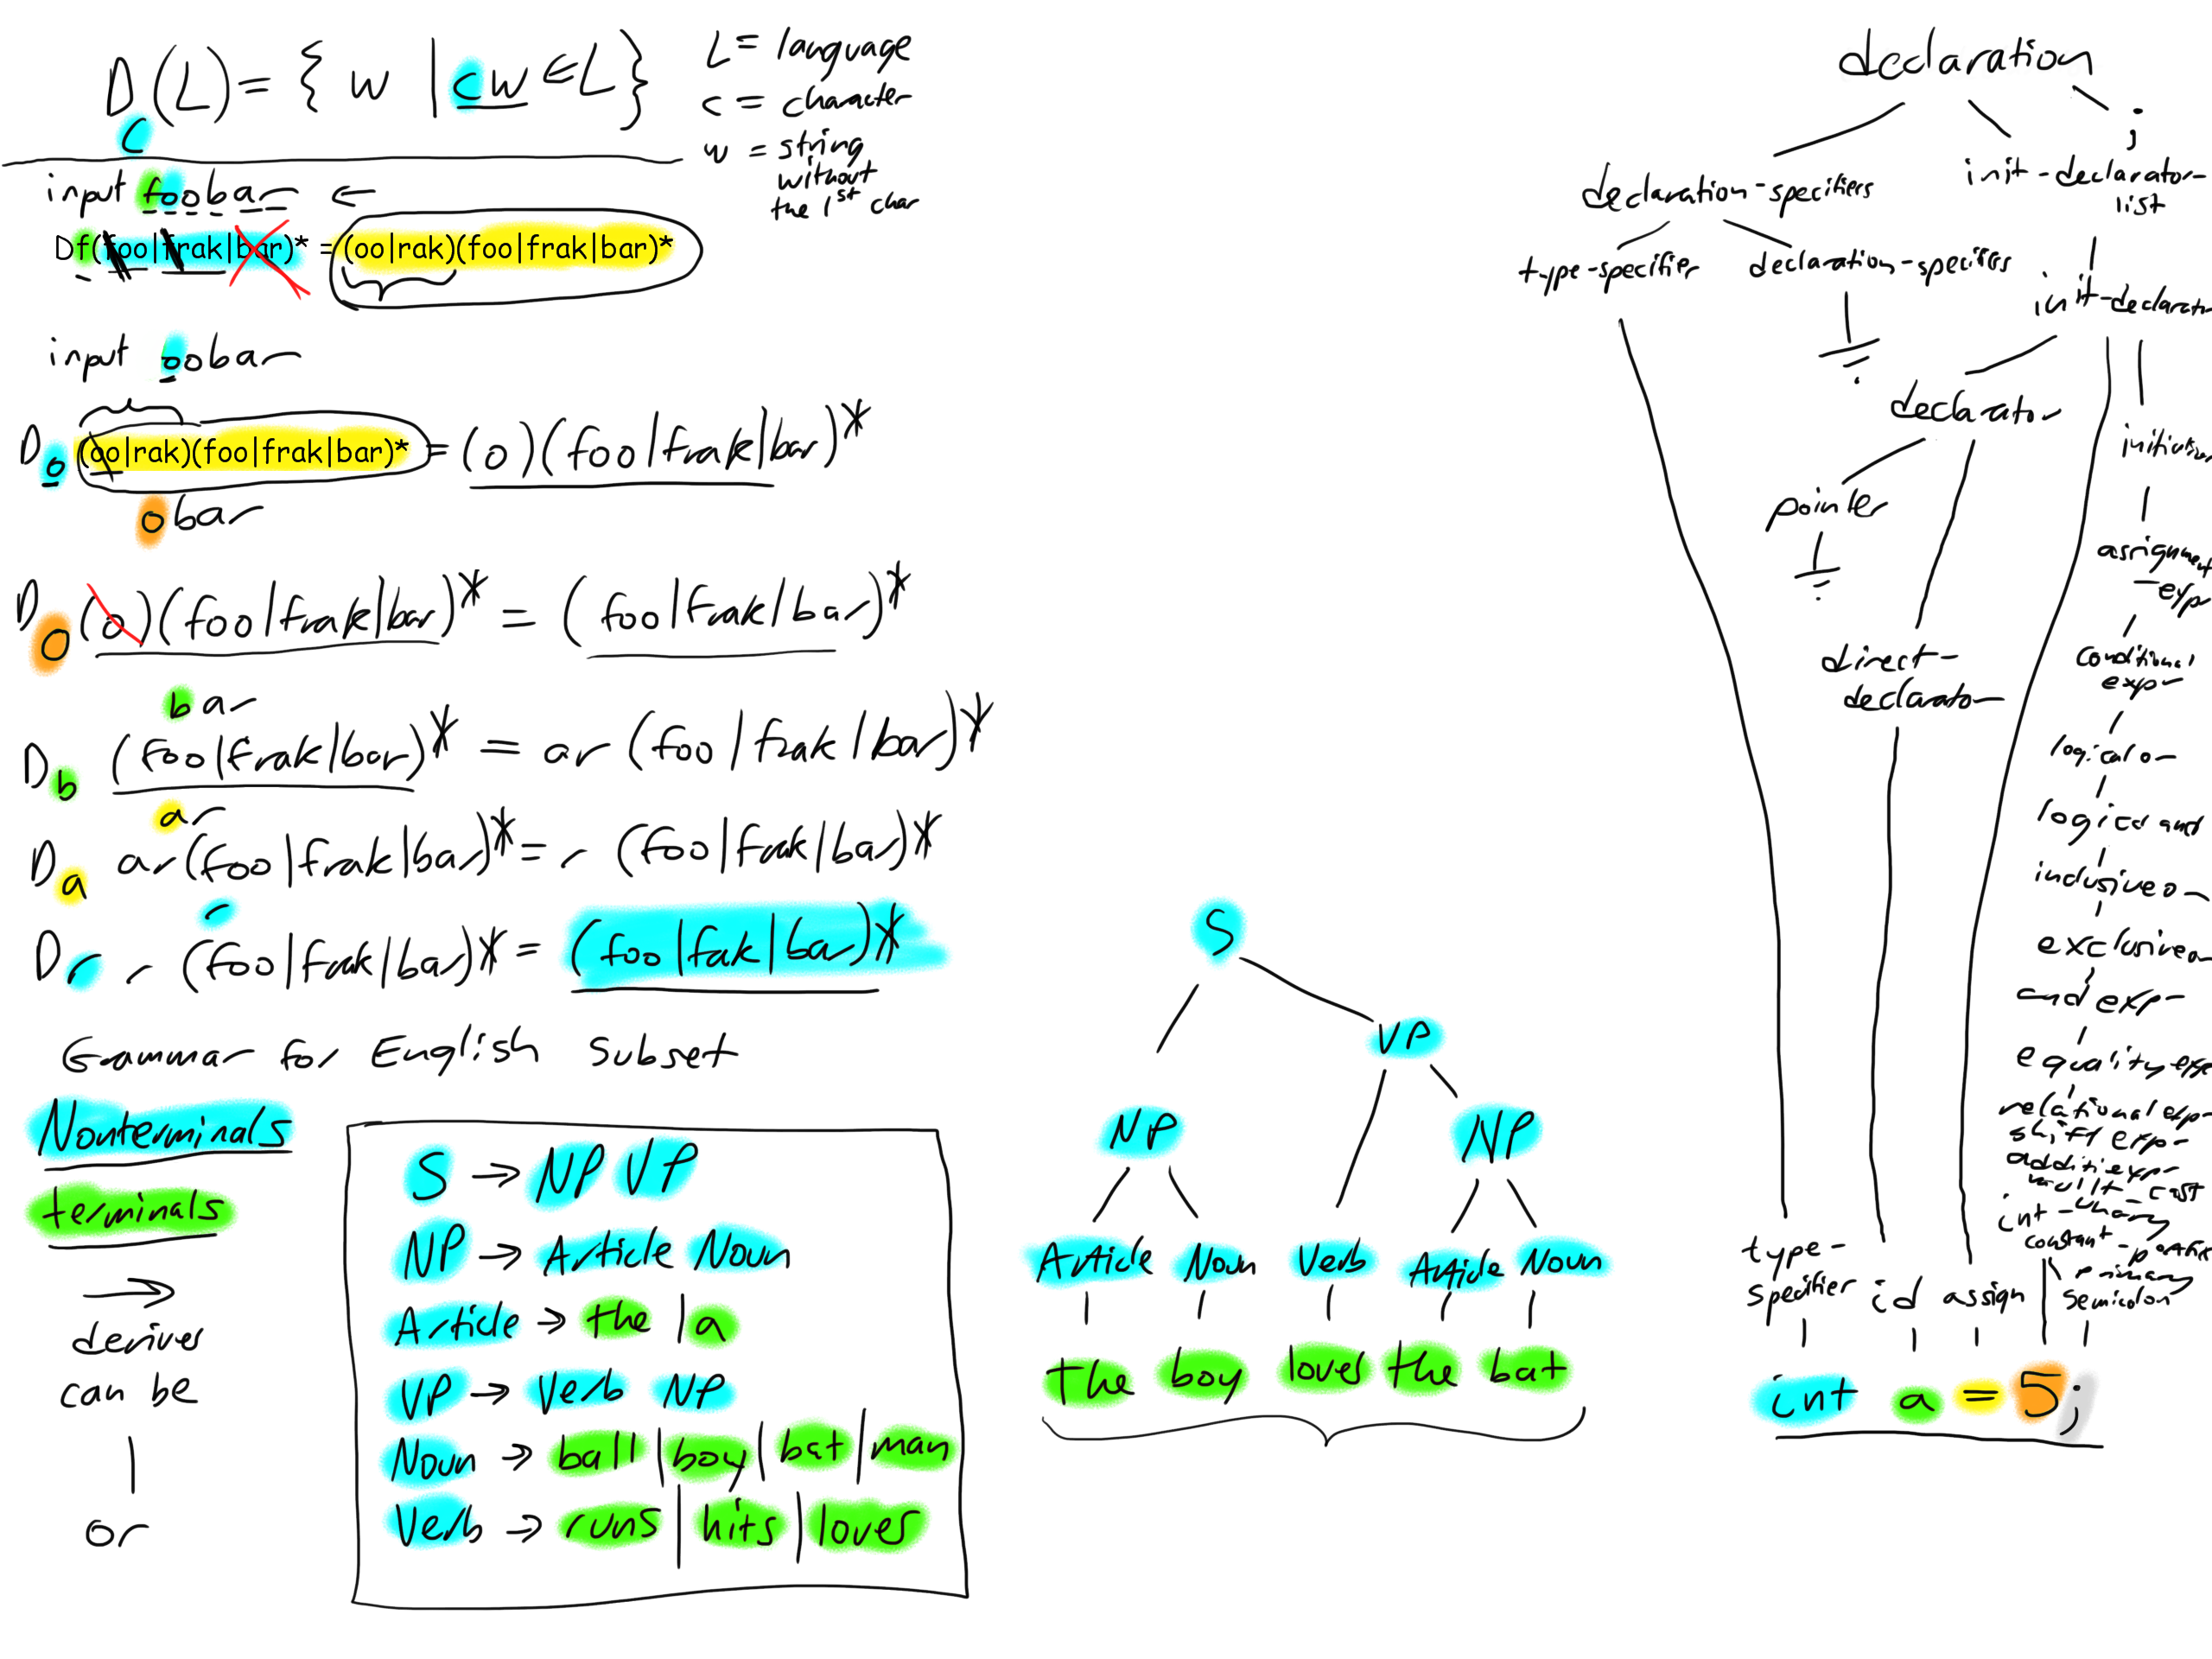 D (L) = { w | cw ∈ L }
c
L = language
c = character
w = string
without
the 1st char
input foobar ←
Df(foo|frak|bar)* = (oo|rak)(foo|frak|bar)*
input oobar
Do (oo|rak)(foo|frak|bar)* = (o)(foo|frak|bar)*
obar
Do (o)(foo|frak|bar)* = (foo|frak|bar)*
bar
Db (foo|frak|bar)* = ar (foo|frak|bar)*
ar
Da ar(foo|frak|bar)* = r (foo|frak|bar)*
r
Dr r (foo|frak|bar)* = (foo|fak|bar)*
Grammar for English Subset
Nonterminals
terminals
→
derives
can be
|
or
S → NP VP
NP → Article Noun
Article → the | a
VP → Verb NP
Noun → ball | boy | bat | man
Verb → runs | hits | loves
S
VP
NP NP
Article Noun Verb Article Noun
The boy loves the bat
declaration
;
declaration-specifiers
init-declarator-
list
type-specifier
declaration-specifiers
init-declarator
declarator
pointer
assignment
-expr
direct-
declarator
conditional
expr
logical or
logical and
inclusive or
exclusive or
and expr
equality expr
relational expr
shift expr
int-unary
constant-postfix
primary
type-
specifier id assign semicolon
int a = 5;